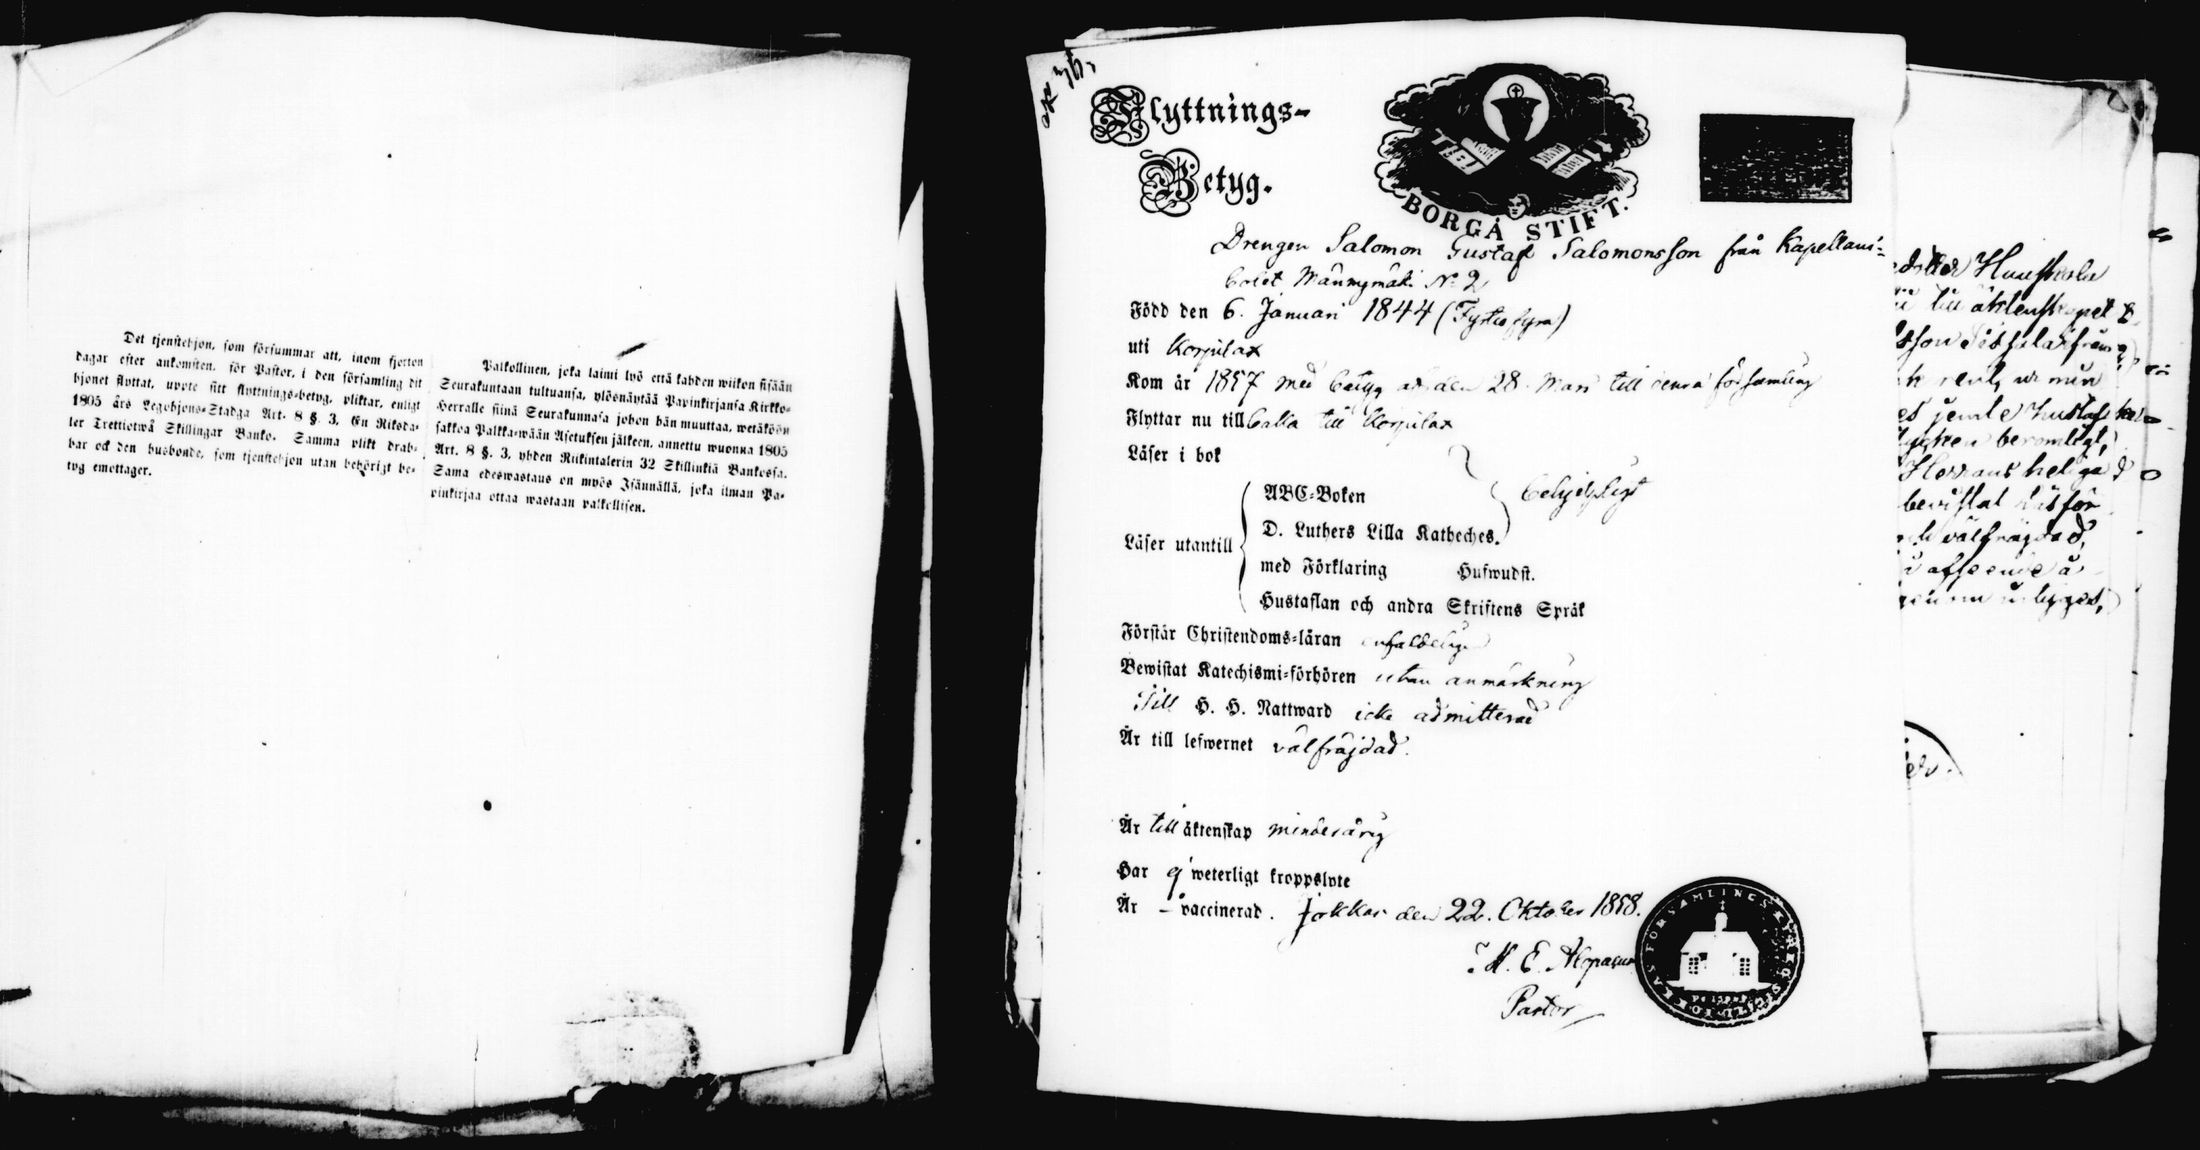 Det tjenstehjon, som försummar att, inom fjorton
dagar efter ankomsten, för Pastor, i den församling dit
hjonet flyttat, uppte sitt flyttnings-betyg, pliktar, enligt
1805 års Legohjons-Stadga Art. 8 §. 3, En Riksda-
ler Trettiotwå Skillingar Banko. Samma plikt drab-
bar ock den husbonde, som tjenstehjon utan behörigt be-
tyg emottager.
Palkollinen, joka laimi lyö että kahden wiikon sisään
Seurakuntaan tultuansa, ylösnäytää Papinkirjansa Kirkko-
Herralle siinä Seurakunnasa johon hän muuttaa, wetäköön
sakkoa Palkka-wään Asetuksen jälkeen, annettu wuonna 1805
Art. 8 §. 3, yhden Riikintalerin 32 Skillinkiä Bankossa.
Sama edeswastaus on myös Isännällä, joka ilman Pa-
pinkirjaa ottaa wastaan palkollisen.
Flyttnings-
Betyg.
BORGÅ STIFT.
Drengen Salomon Gustaf Salomonsson från Kapellans-
bolet Männymäki No 2
Född den 6. Januari 1844 (Fyratiofyra)
uti Korpilax
Kom år 1857 med betyg af den 28. Mars till denna församling
Flyttar nu till baka till Korpilax
Läser i bok
ABC-Boken
behjelpligt
D. Luthers Lilla Katheches.
Läser utantill
med Förklaring Hufwudst.
Hustaflan och andra Skriftens Språk
Förstår Christendoms-läran enfaldeligen
Bewistat Katechismi-förhören utan anmärkning
Till H. H. Nattward icke admitterad
Är till lefwernet välfräjdad.
Är till äktenskap minderårig
Har ej weterligt kroppslyte
Är – vaccinerad. Jokkas den 22. Oktober 1858.
Pastor
till äktenskapet
beromligt,
Herrans heliga
bevistat
välfräjdad,